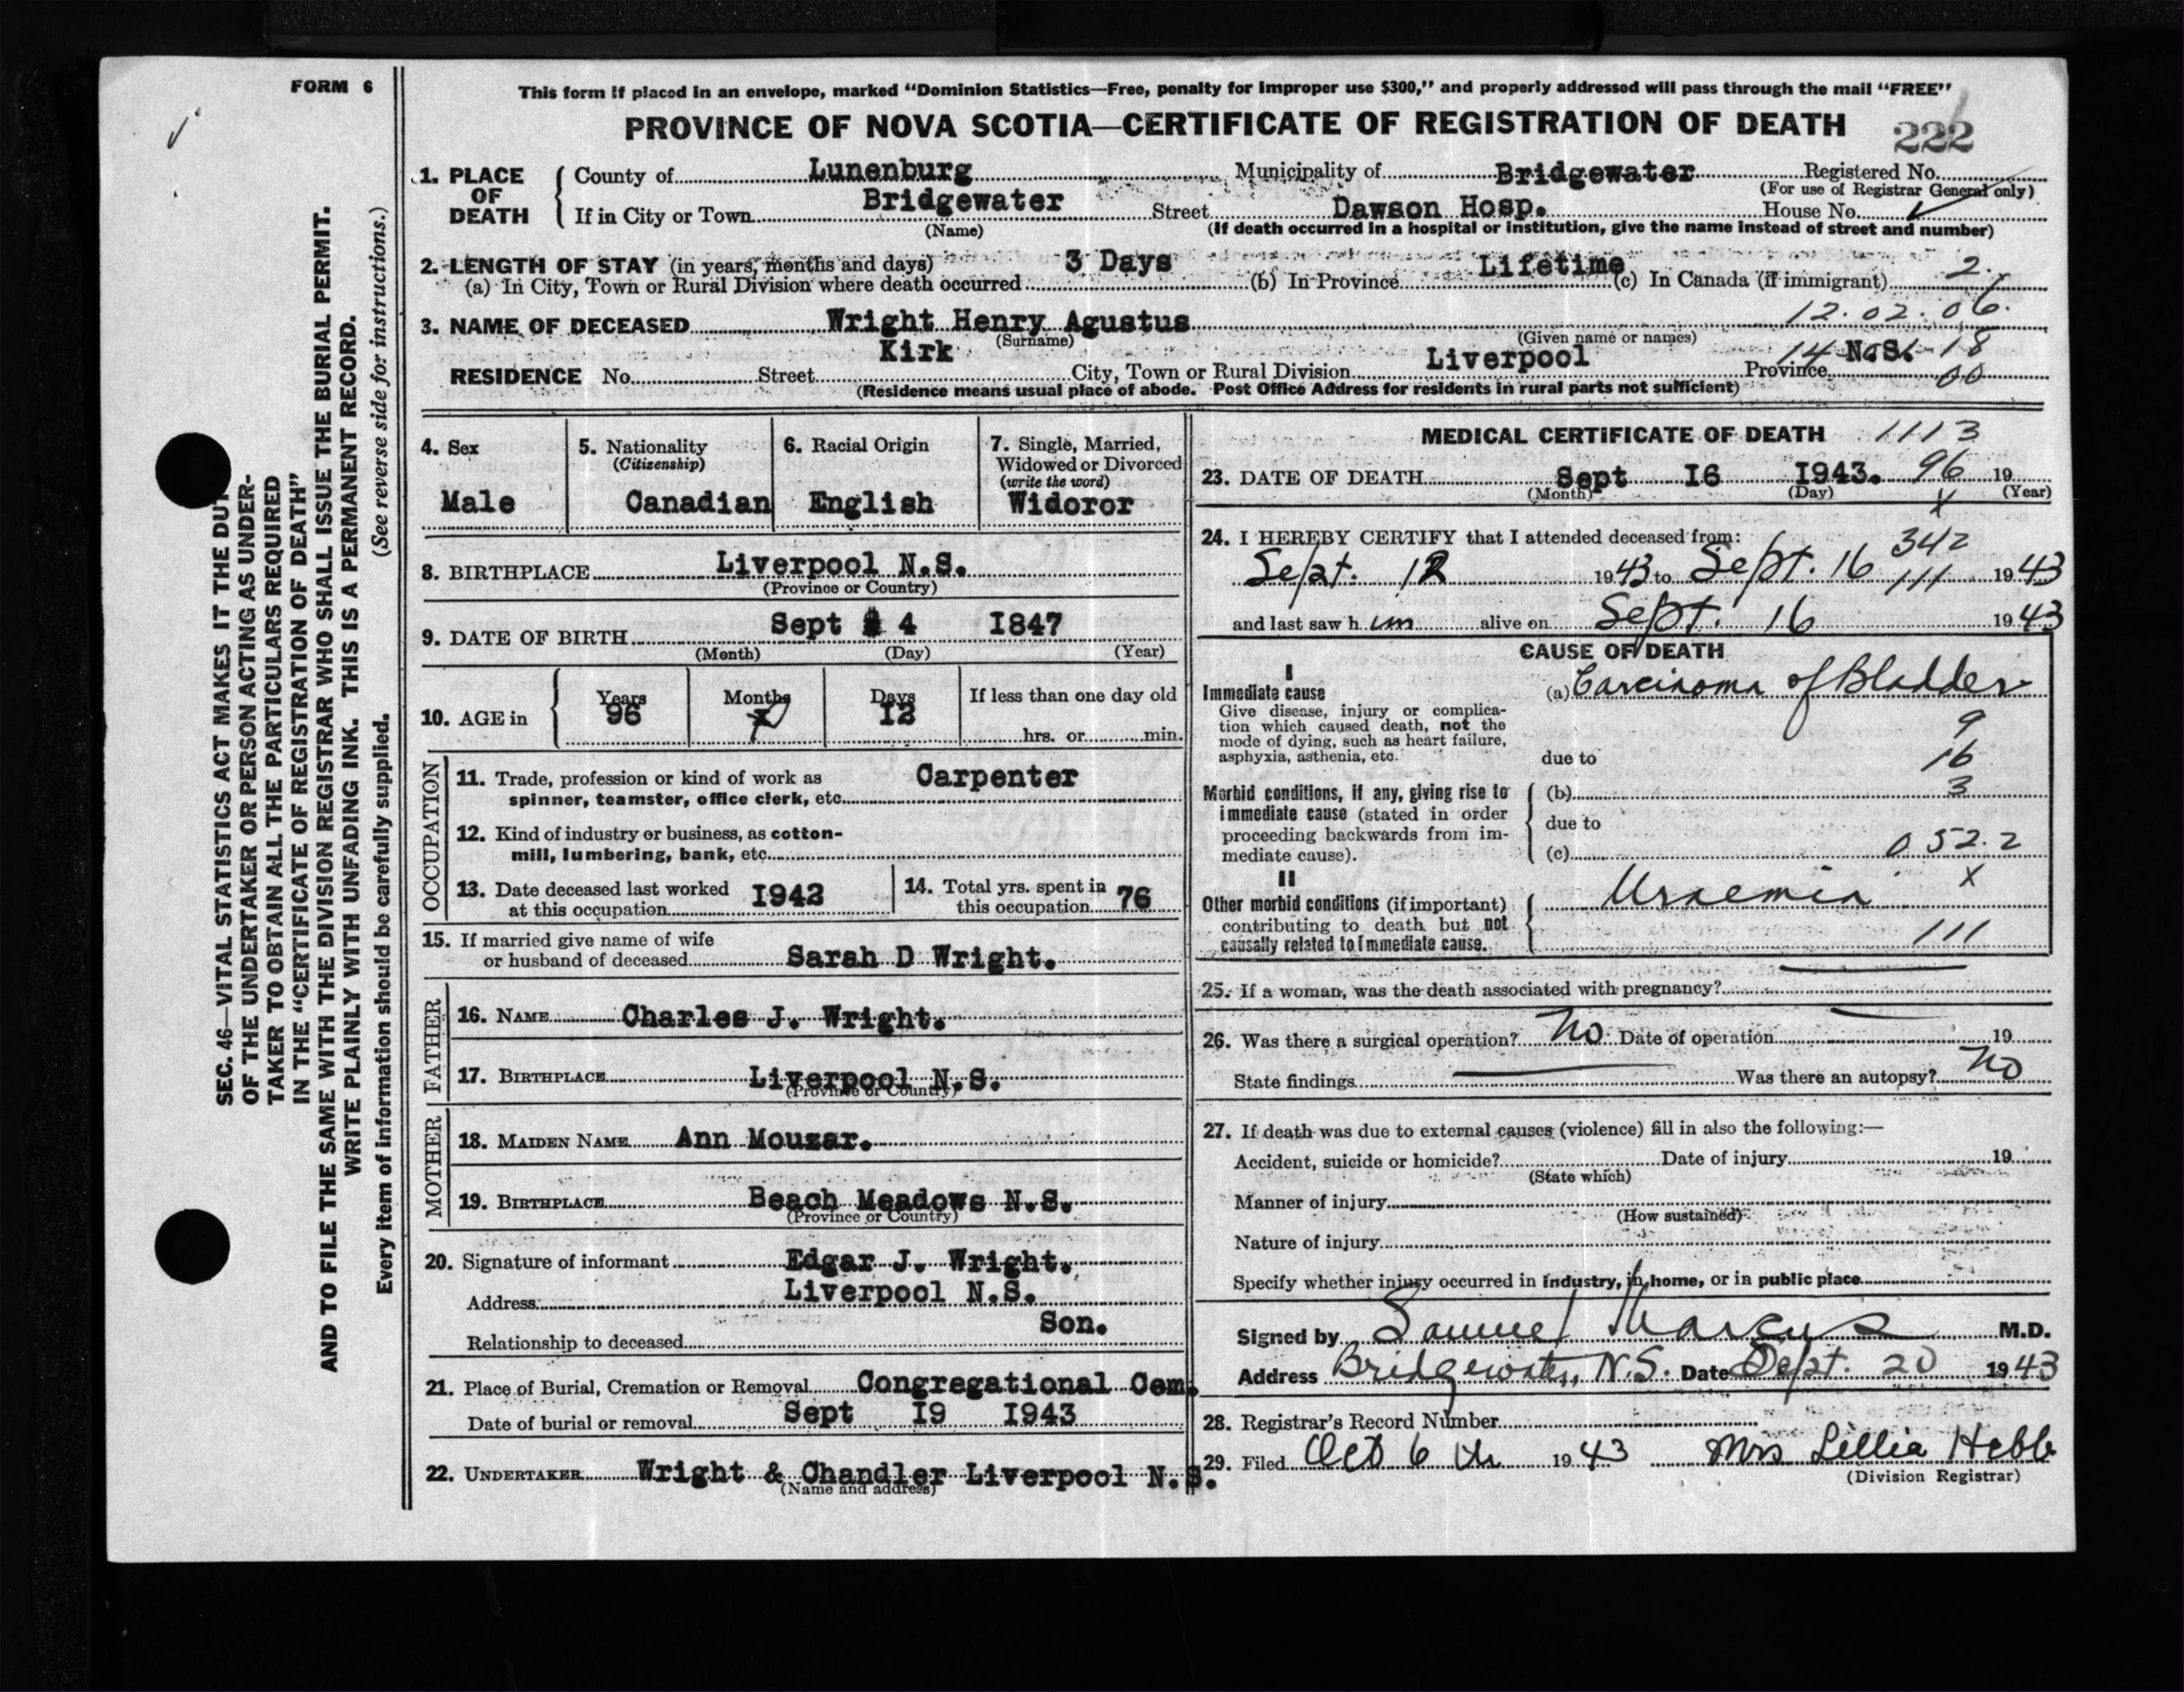 FORM 6
This form if placed in an envelope, marked "Dominion Statistics—Free, penalty for improper use $300," and properly addressed will pass through the mail "FREE"
PROVINCE OF NOVA SCOTIA—CERTIFICATE OF REGISTRATION OF DEATH
222
1. PLACE OF DEATH
County of Lunenburg Municipality of Bridgewater Registered No.
(For use of Registrar General only)
If in City or Town Bridgewater Street Dawson Hosp. House No.
(Name) (If death occurred in a hospital or institution, give the name instead of street and number)
2. LENGTH OF STAY (in years, months and days)
(a) In City, Town or Rural Division where death occurred 3 Days (b) In Province Lifetime (c) In Canada (if immigrant) 2.
12.02.06.
3. NAME OF DECEASED Wright Henry Agustus
(Surname) (Given name or names)
RESIDENCE No. Street Kirk City, Town or Rural Division Liverpool Province N.S. 18
00
(Residence means usual place of abode. Post Office Address for residents in rural parts not sufficient)
4. Sex
Male
5. Nationality
(Citizenship)
Canadian
6. Racial Origin
English
7. Single, Married,
Widowed or Divorced
(write the word)
Widoror
8. BIRTHPLACE Liverpool N.S.
(Province or Country)
9. DATE OF BIRTH Sept 4 I847
(Month) (Day) (Year)
10. AGE in
Years Months Days If less than one day old
96 I2
hrs. or min.
OCCUPATION
11. Trade, profession or kind of work as
spinner, teamster, office clerk, etc. Carpenter
12. Kind of industry or business, as cotton-
mill, lumbering, bank, etc.
13. Date deceased last worked
at this occupation I942
14. Total yrs. spent in
this occupation 76
15. If married give name of wife
or husband of deceased Sarah D Wright.
FATHER
16. NAME Charles J. Wright.
17. BIRTHPLACE Liverpool N.S.
(Province or Country)
MOTHER
18. MAIDEN NAME Ann Mouzar.
19. BIRTHPLACE Beach Meadows N.S.
(Province or Country)
20. Signature of informant Edgar J. Wright.
Address Liverpool N.S.
Relationship to deceased Son.
21. Place of Burial, Cremation or Removal Congregational Cem.
Date of burial or removal Sept I9 I943
22. UNDERTAKER Wright & Chandler Liverpool N.S.
(Name and address)
MEDICAL CERTIFICATE OF DEATH 1113
23. DATE OF DEATH Sept I6 I943. 96 19
(Month) (Day) (Year)
X
24. I HEREBY CERTIFY that I attended deceased from:
342
Sept. 12 1943 to Sept. 16 111 1943
and last saw h im alive on Sept. 16 1943
CAUSE OF DEATH
I
Immediate cause (a) Carcinoma of Bladder
Give disease, injury or complica-
tion which caused death, not the
mode of dying, such as heart failure,
asphyxia, asthenia, etc.
9
due to 16
Morbid conditions, if any, giving rise to
immediate cause (stated in order
proceeding backwards from im-
mediate cause).
(b) 3
due to
(c) 052.2
II
Other morbid conditions (if important)
contributing to death but not
causally related to immediate cause.
Uraemia X
111
25. If a woman, was the death associated with pregnancy?
26. Was there a surgical operation? No Date of operation 19
State findings Was there an autopsy? No
27. If death was due to external causes (violence) fill in also the following:—
Accident, suicide or homicide? Date of injury 19
(State which)
Manner of injury
(How sustained)
Nature of injury
Specify whether injury occurred in industry, in home, or in public place
Signed by Samuel Marcus M.D.
Address Bridgewater, N.S. Date Sept. 20 1943
28. Registrar's Record Number
29. Filed Oct 6 th 1943 Mrs Lillia Hebb
(Division Registrar)
SEC. 46—VITAL STATISTICS ACT MAKES IT THE DUTY
OF THE UNDERTAKER OR PERSON ACTING AS UNDER-
TAKER TO OBTAIN ALL THE PARTICULARS REQUIRED
IN THE "CERTIFICATE OF REGISTRATION OF DEATH"
AND TO FILE THE SAME WITH THE DIVISION REGISTRAR WHO SHALL ISSUE THE BURIAL PERMIT.
WRITE PLAINLY WITH UNFADING INK. THIS IS A PERMANENT RECORD.
(See reverse side for instructions.)
Every item of information should be carefully supplied.